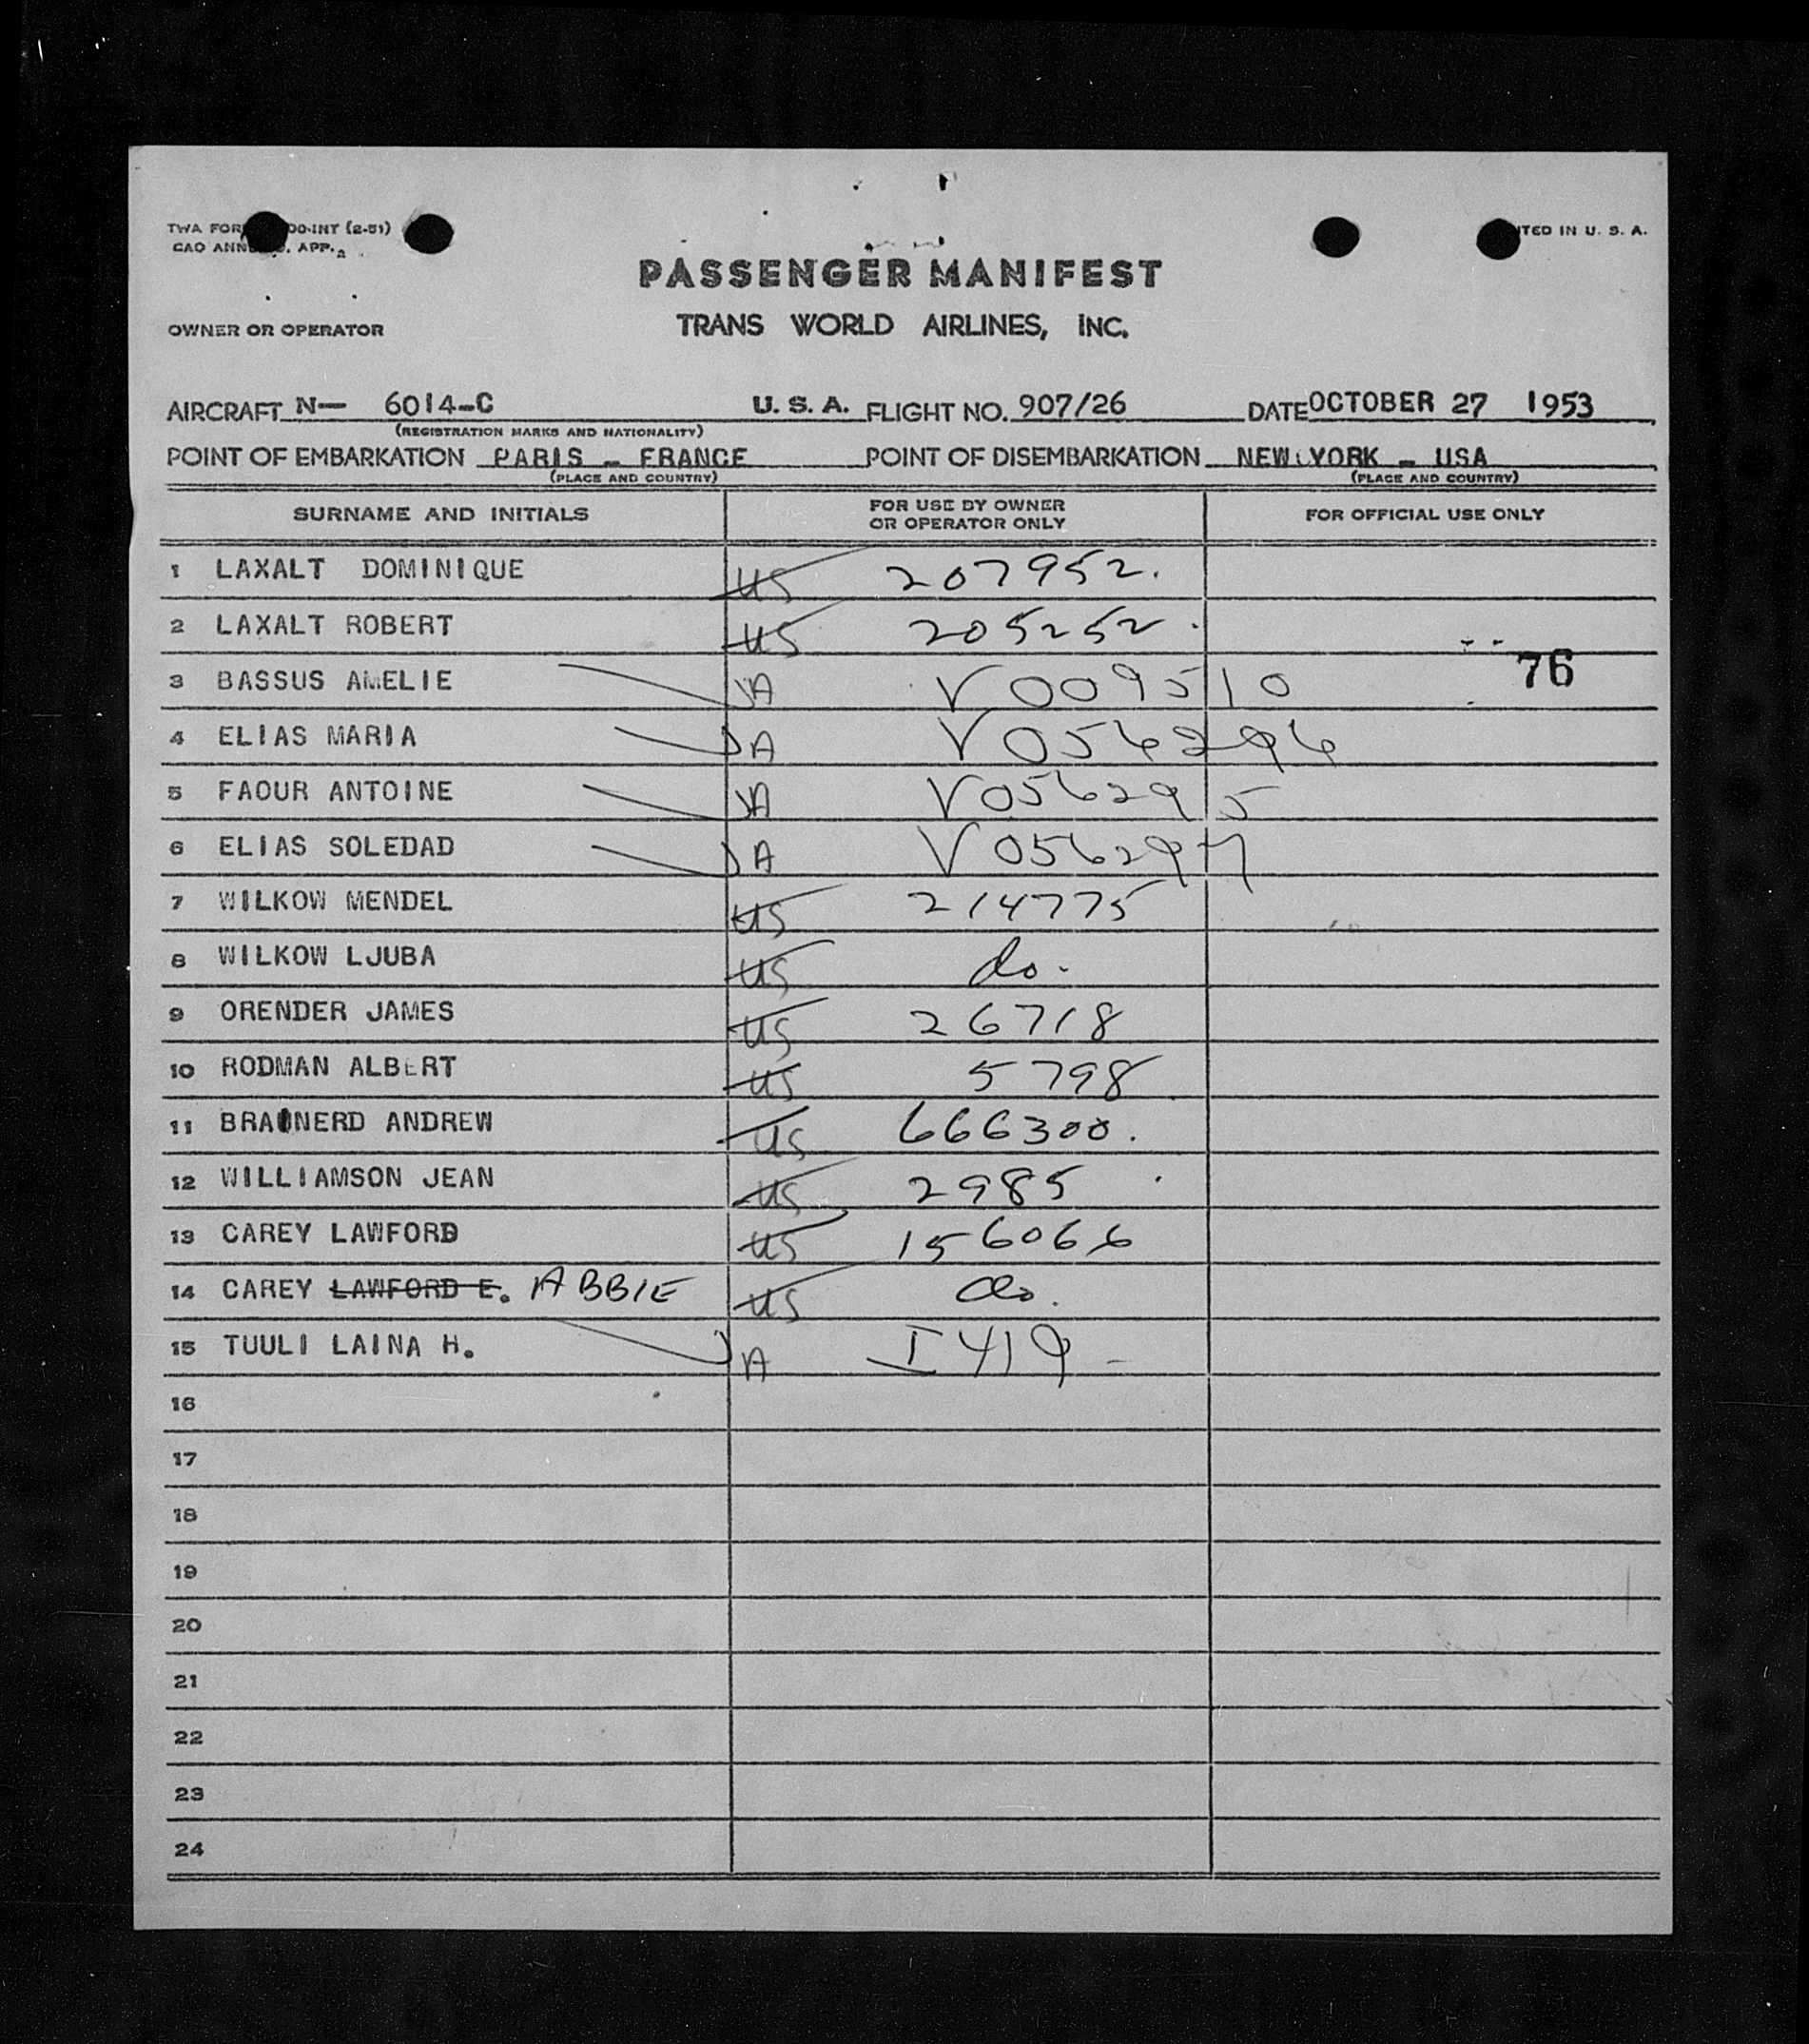 TWA FOR 00-INT (2-51)
CAO ANN . APP. 2
TED IN U. S. A.
PASSENGER MANIFEST
OWNER OR OPERATOR TRANS WORLD AIRLINES, INC.
AIRCRAFT N— 6014-C U. S. A. FLIGHT NO. 907/26 DATE OCTOBER 27 1953
(REGISTRATION MARKS AND NATIONALITY)
POINT OF EMBARKATION PARIS - FRANCE POINT OF DISEMBARKATION NEW YORK - USA
(PLACE AND COUNTRY) (PLACE AND COUNTRY)
SURNAME AND INITIALS FOR USE BY OWNER OR OPERATOR ONLY FOR OFFICIAL USE ONLY
1 LAXALT DOMINIQUE US 207952.
2 LAXALT ROBERT US 205252.
76
3 BASSUS AMELIE A V009510
4 ELIAS MARIA A V0562296
5 FAOUR ANTOINE A V056295
6 ELIAS SOLEDAD A V056297
7 WILKOW MENDEL US 214775
8 WILKOW LJUBA US do.
9 ORENDER JAMES US 26718
10 RODMAN ALBERT US 5798
11 BRAINERD ANDREW US 666300.
12 WILLIAMSON JEAN US 2985
13 CAREY LAWFORD US 156066
14 CAREY LAWFORD E. ABBIE US do.
15 TUULI LAINA H. A I419 -
16
17
18
19
20
21
22
23
24